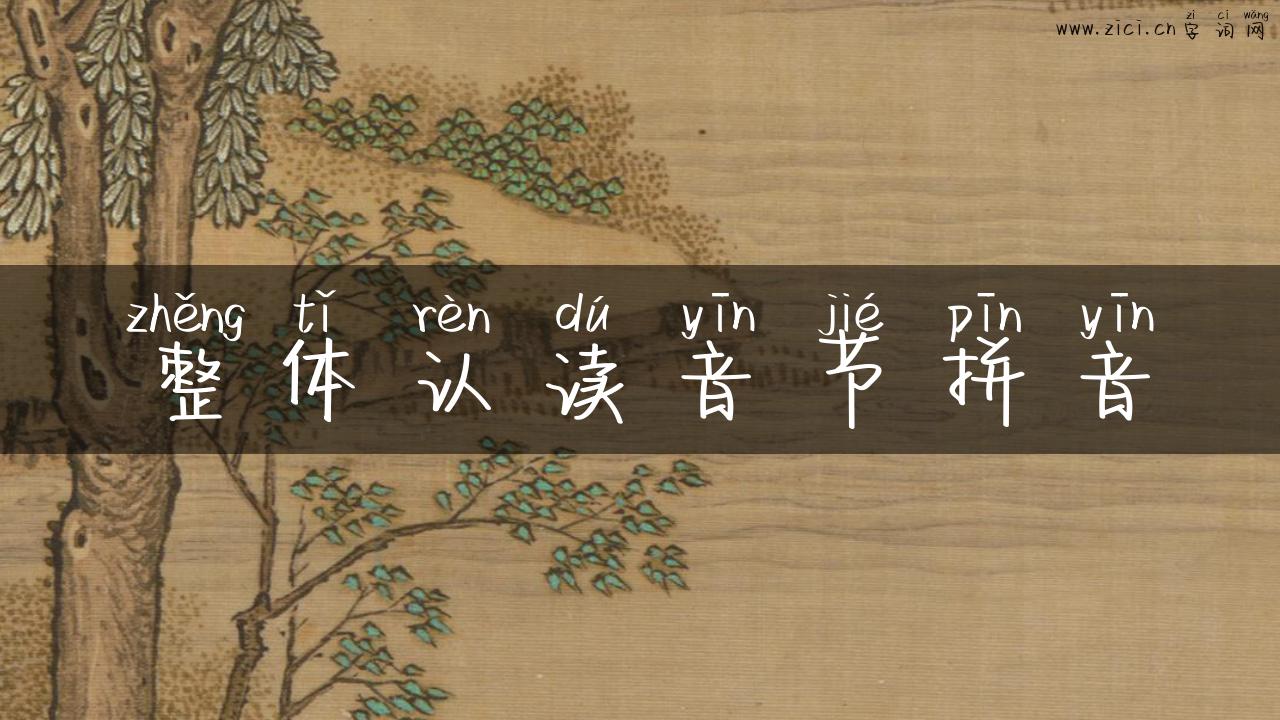 zì cí wǎng
www.zici.cn 字 词 网
zhěng tǐ rèn dú yīn jié pīn yīn
整 体 认 读 音 节 拼 音